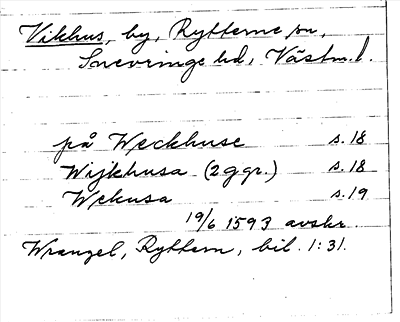 Vikhus, by, Rytterne sn,
Snevringe hd, Västm.l.
på Weckhuse s. 18
Wijkhusa (2 ggr.) s. 18
Wekusa s. 19
19/6 1593 avskr.
Wrangel, Ryttern, bil. 1:31.